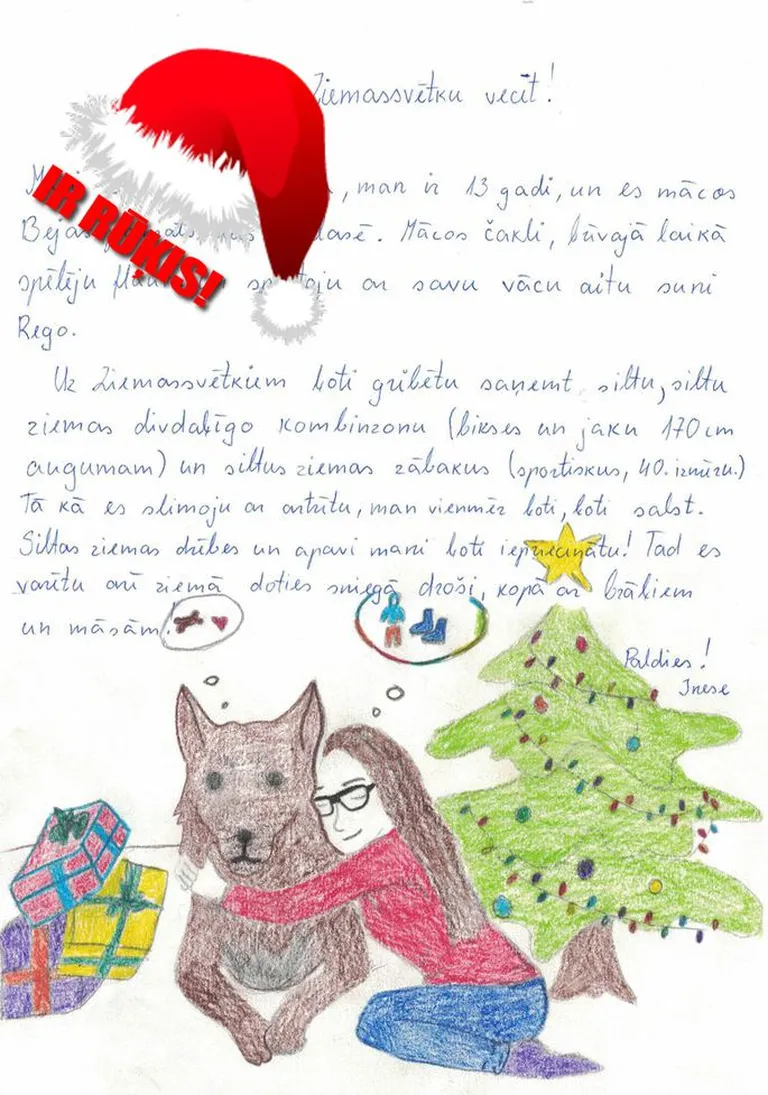 Ziemassvētku vecīt!
IR RŪĶIS!
, man ir 13 gadi, un es mācos
Bejas klasē. Mācos čakli, brīvajā laikā
spēlēju ar savu vācu aitu suni
Rego.
Uz Ziemassvētkiem ļoti gribētu saņemt siltu, siltu
ziemas divdaļīgo kombinzonu (bikses un jaku 170 cm
augumam) un siltus ziemas zābakus (sportiskus, 40. izmēru.)
Tā kā es slimoju ar artrītu, man vienmēr ļoti, ļoti salst.
Siltas ziemas drēbes un apavi mani ļoti iepriecinātu! Tad es
varētu arī ziemā doties sniegā droši, kopā ar brāļiem
un māsām.
Paldies!
Inese